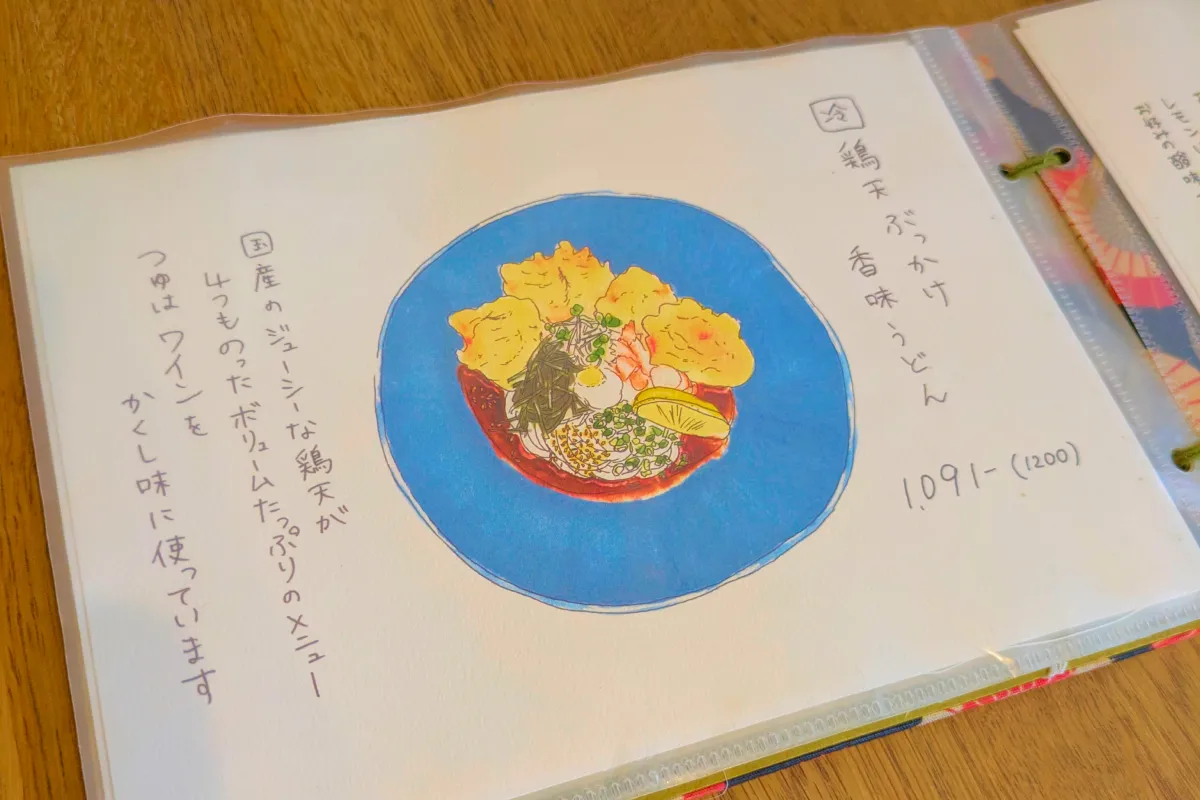 冷 鶏天ぶっかけ
香味うどん
1.091-(1200)
国産のジューシーな鶏天が
4つものったボリュームたっぷりのメニュー
つゆはワインを
かくし味に使っています